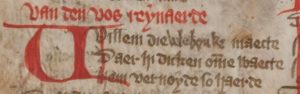 van den vos reynaerde
Willem die vele bouke maecte
Daer hi dicken omme waecte
hem vernoyde so haerde